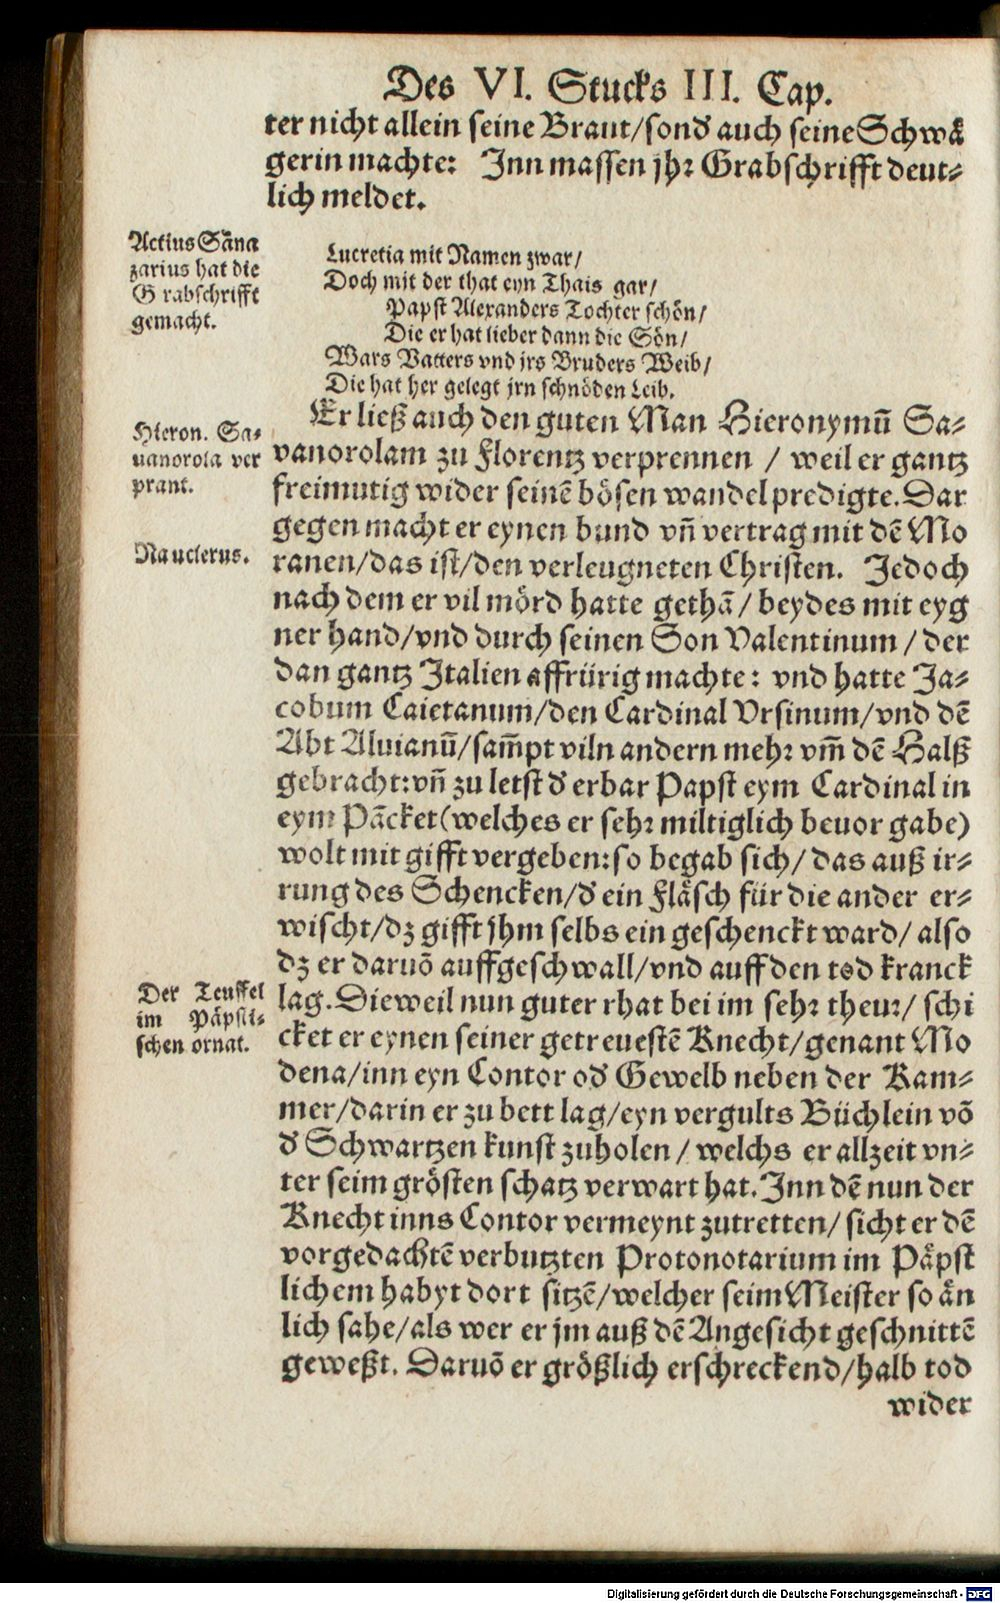 Des VI. Stucks III. Cap.
ter nicht allein seine Braut/sonđ auch seine Schwå
gerin machte: Inn massen jhr Grabschrifft deut-
lich meldet.
Actius Sāna
zarius hat die
Grabschrifft
gemacht.
Lucretia mit Namen zwar/
Doch mit der that eyn Thais gar/
Papst Alexanders Tochter schön/
Die er hat lieber dann die Sön/
Wars Vatters vnd jrs Bruders Weib/
Die hat her gelegt jrn schnöden Leib.
Hieron. Sa-
uanorola ver
prant.
Nauclerus.
Er ließ auch den guten Man Hieronymū Sa-
vanorolam zu Florentz verprennen / weil er gantz
freimutig wider seinē bösen wandel predigte. Dar
gegen macht er eynen bund vn̄ vertrag mit dē Mo
ranen/das ist/den verleugneten Christen. Jedoch
nach dem er vil mörd hatte gethā/ beydes mit eyg
ner hand/vnd durch seinen Son Valentinum / der
dan gantz Italien affrürig machte: vnd hatte Ja-
cobum Caietanum/den Cardinal Vrsinum/vnd dē
Abt Aluianū/sam̄pt viln andern mehr vm̄ dē Halß
gebracht:vn̄ zu letst đ erbar Papst eym Cardinal in
eym Pācket(welches er sehr miltiglich beuor gabe)
wolt mit gifft vergeben:so begab sich/ das auß ir-
rung des Schencken/đ ein Fläsch für die ander er-
wischt/dz gifft jhm selbs ein geschenckt ward/ also
dz er daruō auffgeschwall/vnd auff den tod kranck
lag. Dieweil nun guter rhat bei im sehr theur/ schi
cket er eynen seiner getreuestē Knecht/genant Mo
dena/inn eyn Contor ođ Gewelb neben der Kam-
mer/darin er zu bett lag/eyn vergults Büchlein vō
đ Schwartzen kunst zuholen / welchs er allzeit vn-
ter seim grösten schatz verwart hat. Inn dē nun der
Knecht inns Contor vermeynt zutretten/ sicht er dē
vorgedachtē verbutzten Protonotarium im Päpst
lichem habyt dort sitzē/welcher seim Meister so än
lich sahe/als wer er jm auß dē Angesicht geschnittē
geweßt. Daruō er größlich erschreckend/halb tod
Der Teuffel
im Päpsti-
schen ornat.
wider
Digitalisierung gefördert durch die Deutsche Forschungsgemeinschaft - DFG